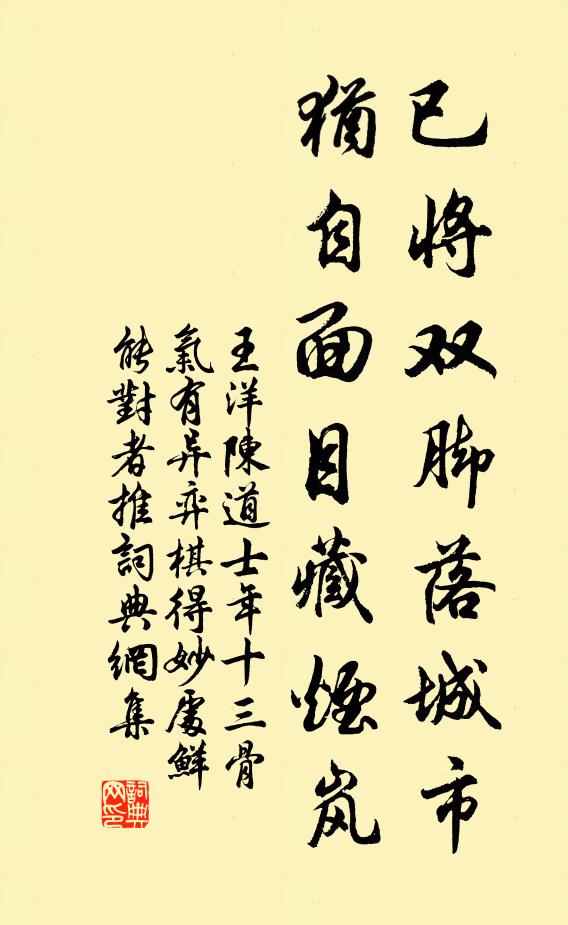 已将双脚落城市
犹自面目藏烟岚
王洋陳道士年十三骨
氣有异弈棋得妙處鮮
能對者推詞典網集
詞典网印